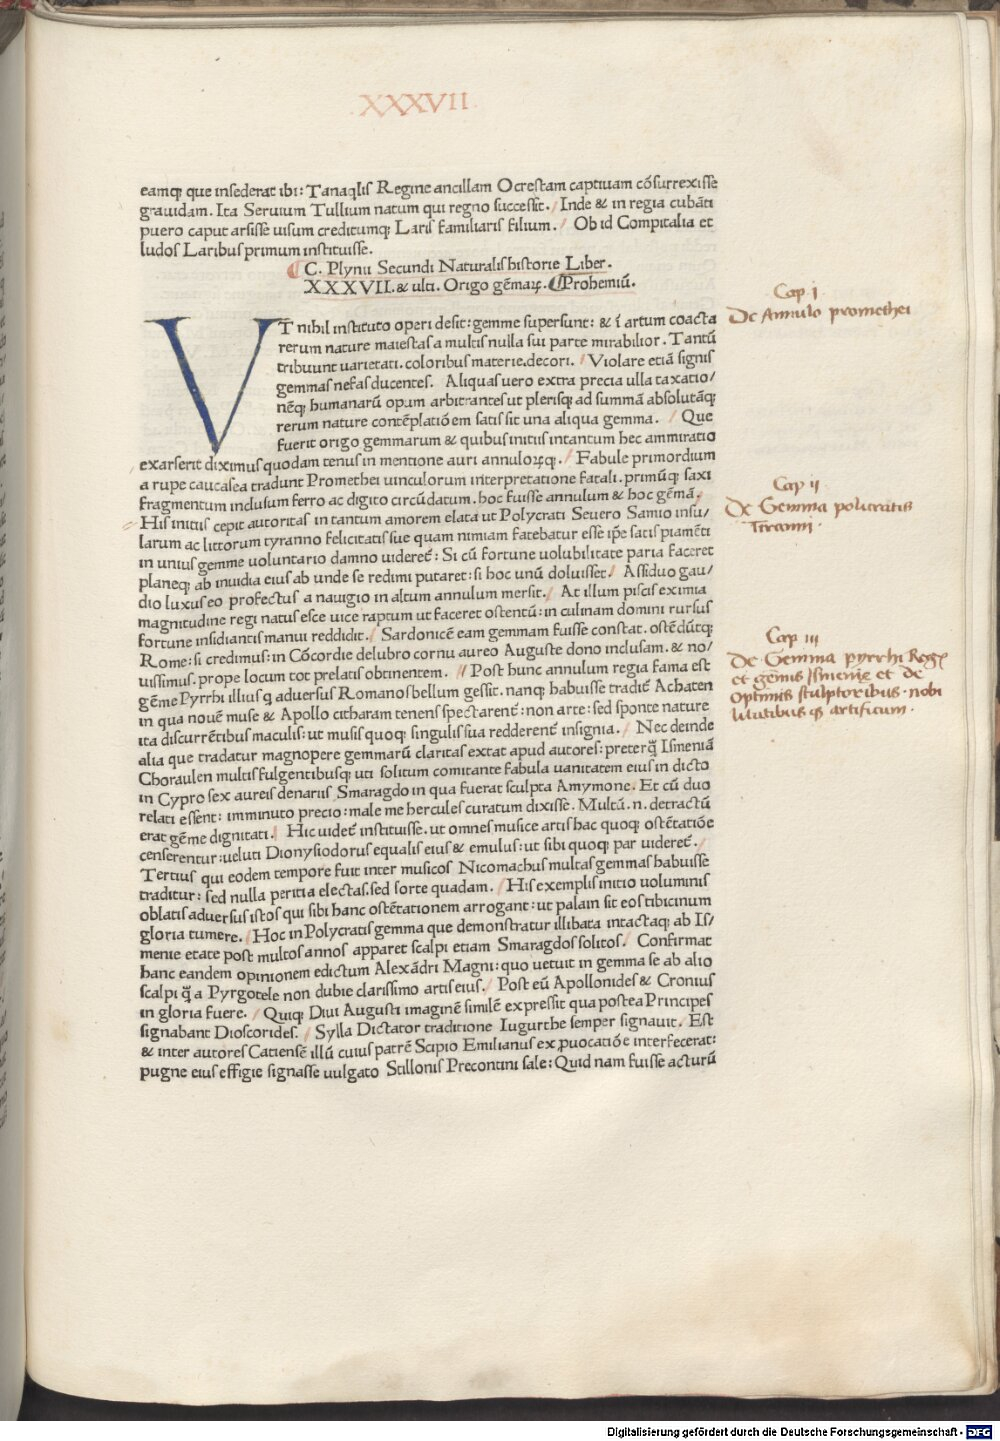 .XXXVII.
eamq; que insederat ibi: Tanaqlis Regine ancillam Ocrestam captiuam cõsurrexisse
grauidam. Ita Seruium Tullium natum qui regno successit. Inde & in regia cubãti
puero caput arsisse uisum creditumq; Laris familiaris filium. Ob id Compitalia et
ludos Laribus primum instituisse.
C. Plynii Secundi Naturalis historie Liber.
XXXVII. & ulti. Origo gẽmaꝝ. Prohemiũ.
Cap i
De Annulo promethei
VT nihil instituto operi desit: gemme supersunt: & ĩ artum coacta
rerum nature maiestas a multis nulla sui parte mirabilior. Tantũ
tribuunt uarietati. coloribus materie. decori. Violare etiã signis
gemmas nefas ducentes. Aliquas uero extra precia ulla taxatio/
nẽq; humanarũ opum arbitrantes ut plerisq; ad summã absolutãq;
rerum nature contẽplatiõem satis sit una aliqua gemma. Que
fuerit origo gemmarum & quibus initiis intantum hec ammiratio
exarserit diximus quodam tenus in mentione auri annuloꝝq;. Fabule primordium
a rupe caucasea tradunt Promethei uinculorum interpretatione fatali. primũq; saxi
fragmentum inclusum ferro ac digito circũdatum. hoc fuisse annulum & hoc gẽmã.
Cap ii
De Gemma policratis
Tiranni.
His initiis cepit autoritas in tantum amorem elata ut Polycrati Seuero Samio insu/
larum ac littorum tyranno felicitatis sue quam nimiam fatebatur esse ip̃e satis piamẽti
in unius gemme uoluntario damno uideret̃: Si cũ fortune uolubilitate paria faceret
planeq; ab inuidia eius ab unde se redimi putaret: si hoc unũ doluisset. Assiduo gau/
dio luxus eo profectus a nauigio in altum annulum mersit. At illum piscis eximia
magnitudine regi natus esce uice raptum ut faceret ostentũ: in culinam domini rursus
fortune insidiantis manui reddidit. Sardonicẽ eam gemmam fuisse constat. ostẽdũtq;
Rome: si credimus: in Cõcordie delubro cornu aureo Auguste dono inclusam. & no/
uissimus. prope locum tot prelatis obtinentem. Post hunc annulum regia fama est
Cap iii
De Gemma pyrrhi Reg
et gẽmis Ismenie et de
optimis sculptoribus. nobi
litatibus q; artificum.
gẽme Pyrrhi illius q aduersus Romanos bellum gessit. nanq; habuisse tradit̃ Achaten
in qua nouẽ muse & Apollo citharam tenens spectarent̃: non arte: sed sponte nature
ita discurrẽtibus maculis: ut musis quoq; singulis sua redderent̃ insignia. Nec deinde
alia que tradatur magnopere gemmarũ claritas extat apud autores: preterq̃ Ismeniã
Choraulen multis fulgentibusq; uti solitum comitante fabula uanitatem eius in dicto
in Cypro sex aureis denariis Smaragdo in qua fuerat sculpta Amymone. Et cũ duo
relati essent: imminuto precio: male me hercules curatum dixisse. Multũ. n. detractũ
erat gẽme dignitati. Hic uidet̃ instituisse. ut omnes musice artis hac quoq; ostẽtatiõe
censerentur: ueluti Dionysiodorus equalis eius & emulus: ut sibi quoq; par uideret̃.
Tertius qui eodem tempore fuit inter musicos Nicomachus multas gemmas habuisse
traditur: sed nulla peritia electas. sed sorte quadam. His exemplis initio uoluminis
oblatis aduersus istos qui sibi hanc ostẽtationem arrogant: ut palam sit eos tibicinum
gloria tumere. Hoc in Polycratis gemma que demonstratur illibata intactaq; ab Is/
menie etate post multos annos apparet scalpi etiam Smaragdos solitos. Confirmat
hanc eandem opinionem edictum Alexãdri Magni: quo uetuit in gemma se ab alio
scalpi q̃ a Pyrgotele non dubie clarissimo artis eius. Post eũ Apollonides & Cronius
in gloria fuere. Quiq; Diui Augusti imaginẽ similẽ expressit qua postea Principes
signabant Dioscorides. Sylla Dictator traditione Iugurthe semper signauit. Est
& inter autores Catiensẽ illũ cuius patrẽ Scipio Emilianus ex ꝓuocatiõe interfecerat:
pugne eius effigie signasse uulgato Stillonis Precontini sale: Quid nam fuisse acturũ
Digitalisierung gefördert durch die Deutsche Forschungsgemeinschaft - DFG